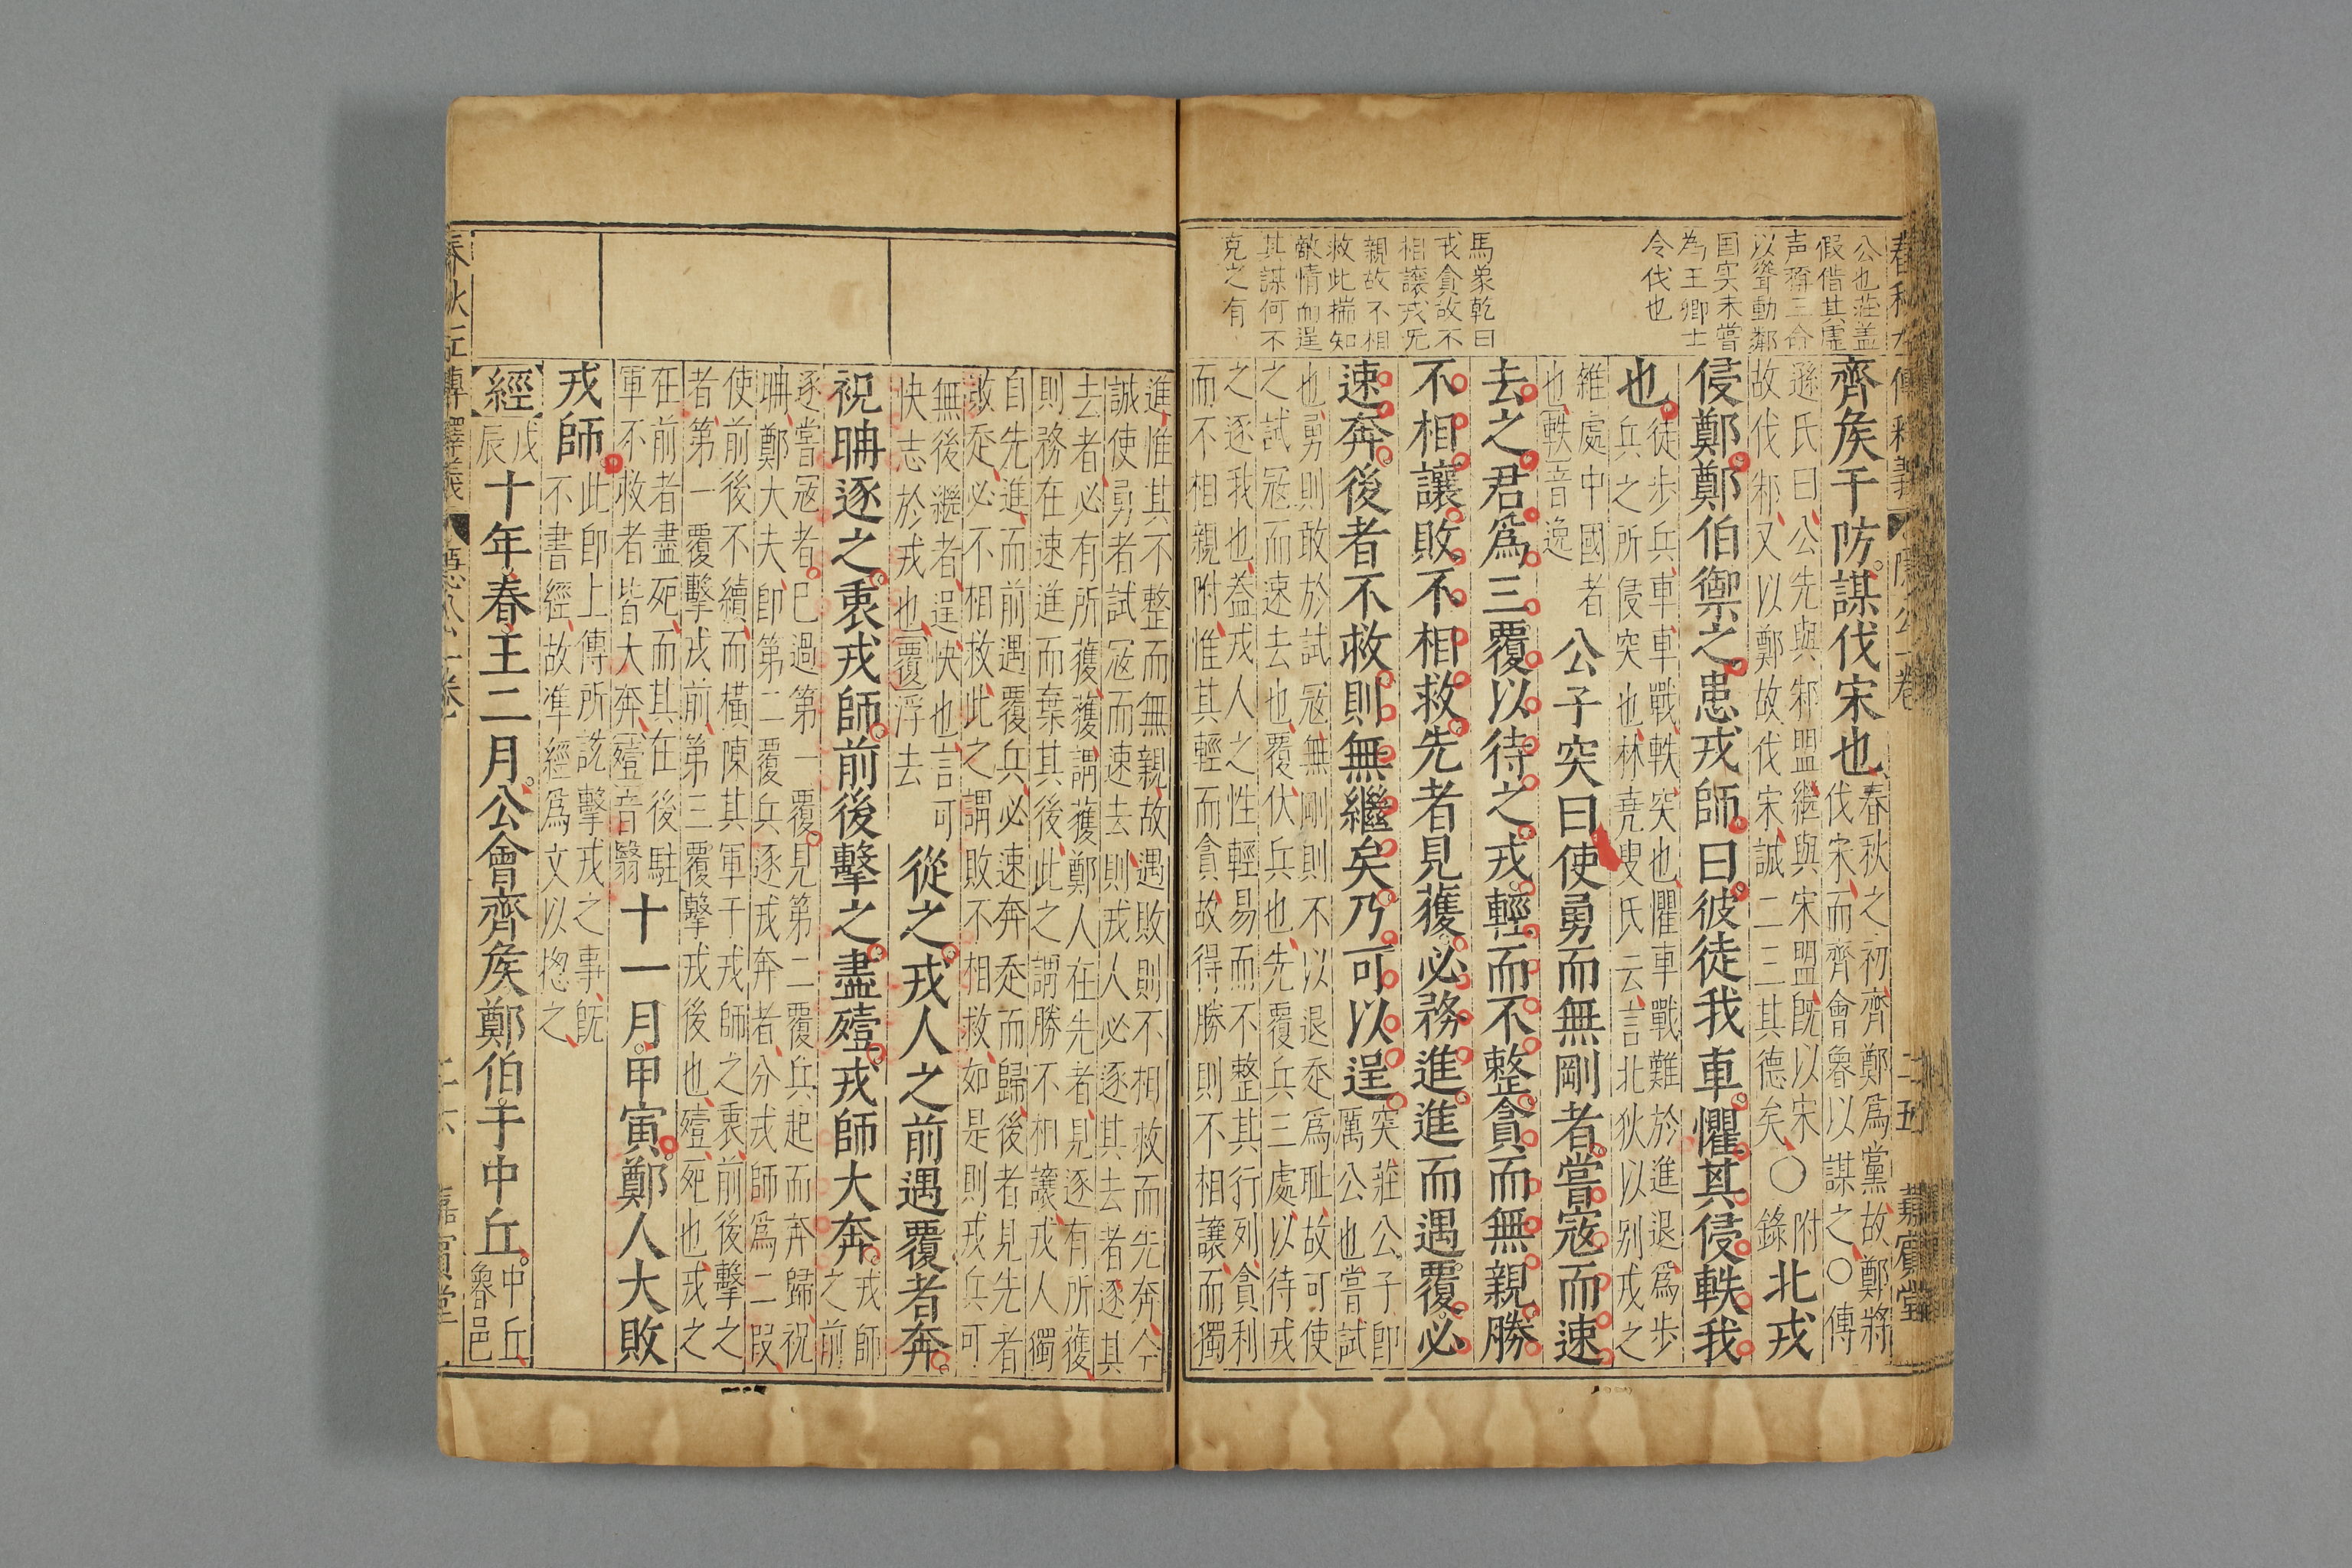 公也莊盖
假借其虛
声齊三命
以聳動鄰
国实未嘗
為王卿士
令伐也
馬象乾曰
戎貪故不
相讓戎旡
親故不相
救此揣知
敵情而逞
其謀何不
克之有
齊矦于防謀伐宋也
春秋之初齊鄭爲黨故鄭將
伐宋而齊會魯以謀之○傳
遜氏曰公先與邾盟繼與宋盟旣以宋
故伐邾又以鄭故伐宋誠二三其德矣○附
錄
北戎
侵鄭鄭伯禦之患戎師曰彼徒我車懼其侵軼我
也
徒步兵車車戰軼突也懼車戰難於進退爲步
兵之所侵突也林堯叟氏云言北狄以别戎之
雜處中國者
也軼音逸
公子突曰使勇而無剛者嘗寇而速
去之君爲三覆以待之戎輕而不整貪而無親勝
不相讓敗不相救先者見獲必務進進而遇覆必
速奔後者不救則無繼矣乃可以逞
突莊公子卽
厲公也嘗試
也勇則敢於試寇無剛則不以退奔爲耻故可使
之試寇而速去也覆伏兵也先覆兵三處以待戎
之逐我也葢戎人之性輕易而不整其行列貪利
而不相親附惟其輕而貪故得勝則不相讓而獨
進惟其不整而無親故遇敗則不相救而先奔今
誠使勇者試寇而速去則戎人必逐其去者逐其
去者必有所獲獲謂獲鄭人在先者見逐有所獲
則務在速進而棄其後此之謂勝不相讓戎人獨
自先進而前遇覆兵必速奔奔而歸後者見先者
敗奔必不相救此之謂敗不相救如是則戎兵可
無後繼者逞快也言可
快志於戎也覆浮去
從之戎人之前遇覆者奔
祝聃逐之衷戎師前後擊之盡殪戎師大奔
戎師
之前
逐當寇者已過第一覆見第二覆兵起而奔歸祝
聃鄭大夫卽第二覆兵逐戎奔者分戎師爲二叚
使前後不續而橫陳其軍于戎師之衷前後擊之
者第一覆擊戎前第三覆擊戎後也殪死也戎之
在前者盡死而其在後駐
軍不救者皆大奔殪音翳
十一月甲寅鄭人大敗
戎師
此卽上傳所説擊戎之事旣
不書經故凖經爲文以揔之
經
戊
辰
十年春王二月公會齊矦鄭伯于中丘
中丘
魯邑